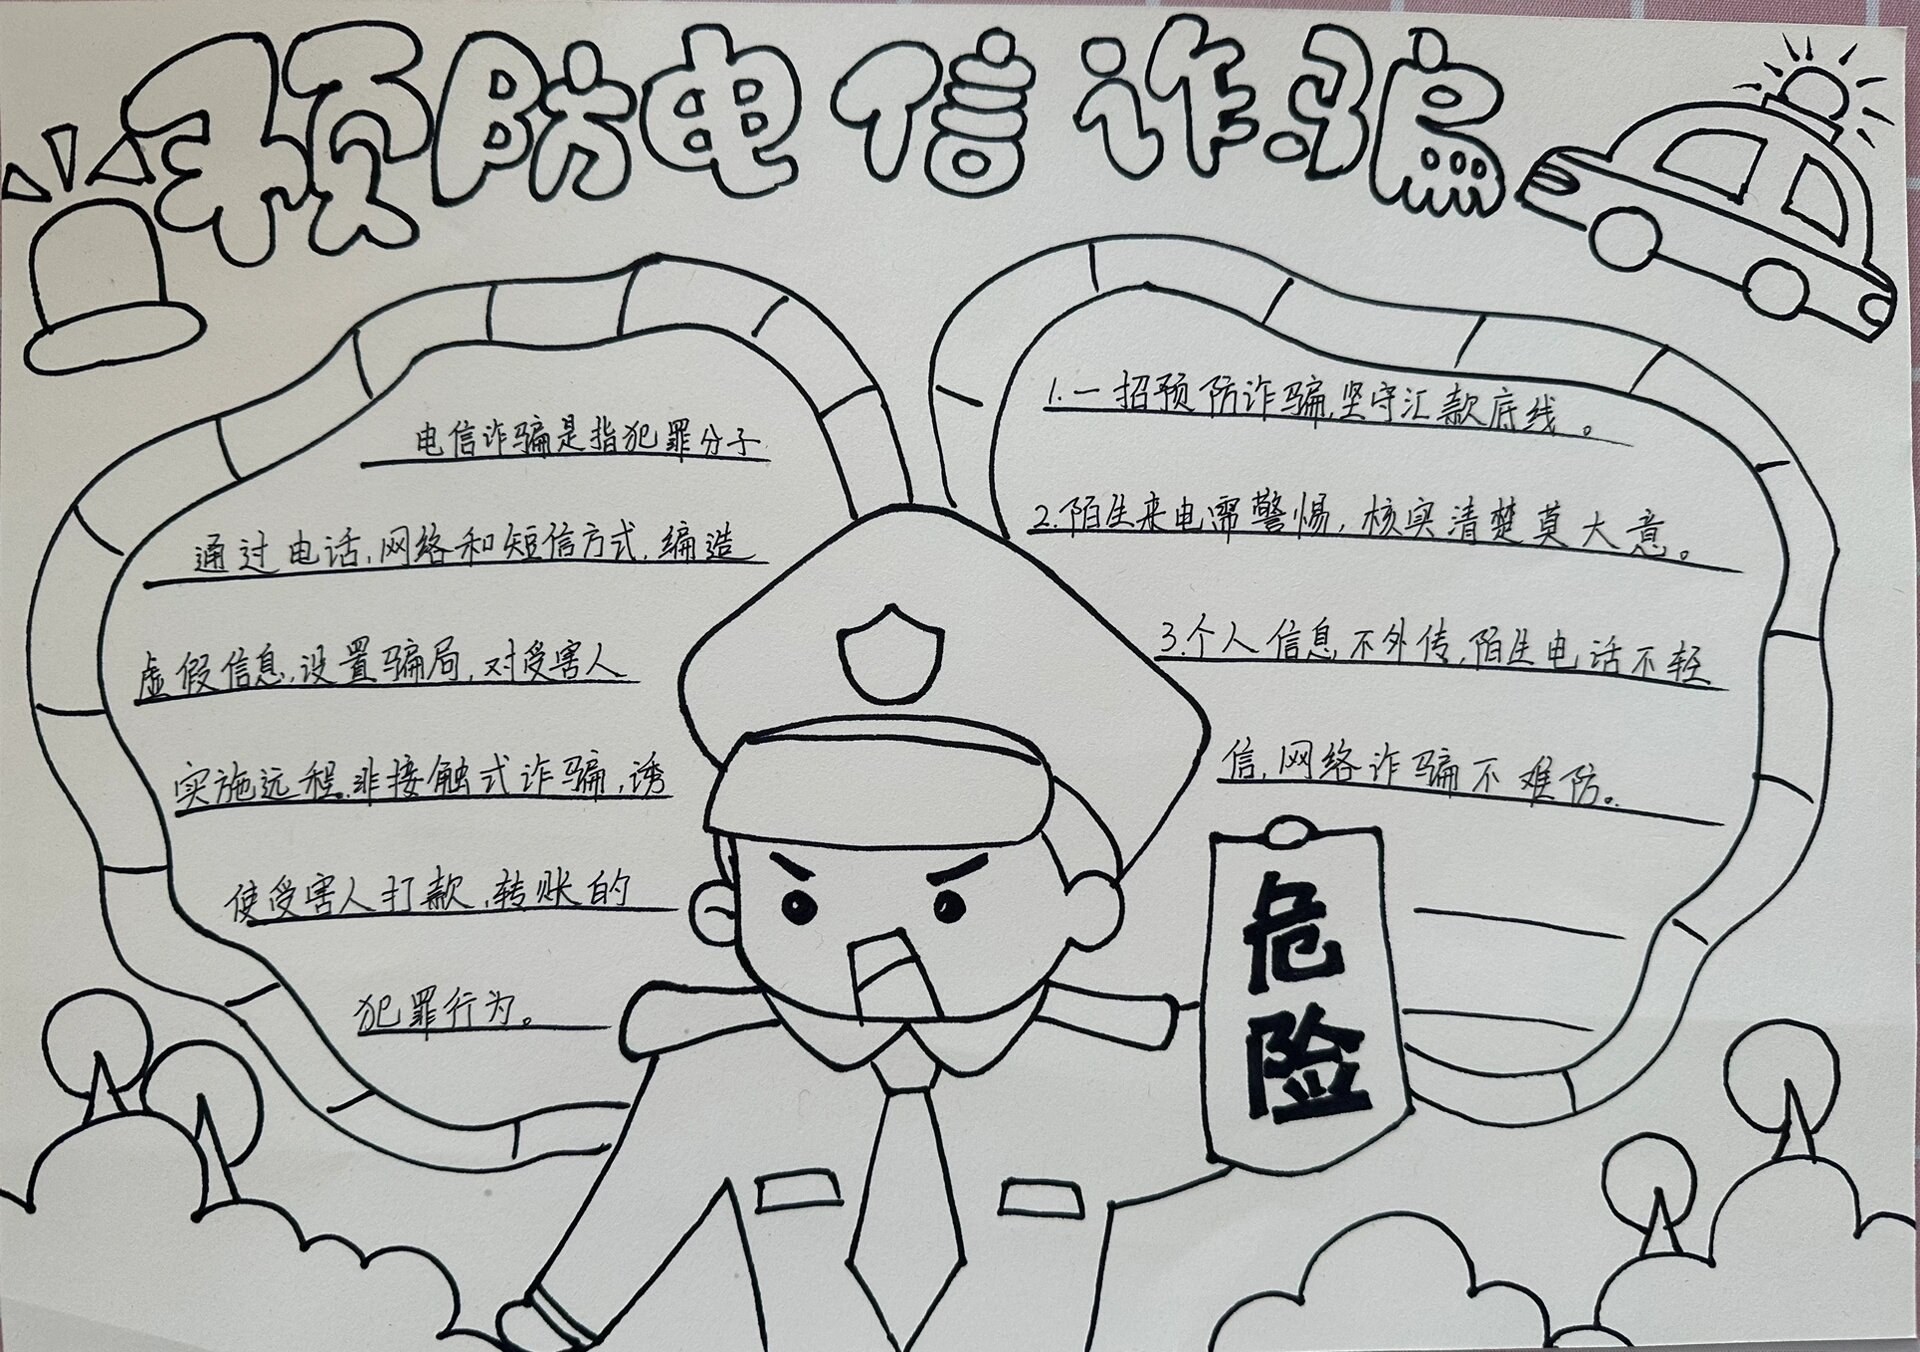 预防电信诈骗
电信诈骗是指犯罪分子
通过电话,网络和短信方式,编造
虚假信息,设置骗局,对受害人
实施远程.非接触式诈骗,诱
使受害人打款,转账的
犯罪行为。
1.一招预防诈骗,坚守汇款底线。
2.陌生来电需警惕,核实清楚莫大意。
3.个人信息不外传,陌生电话不轻
信,网络诈骗不难防。
危
险